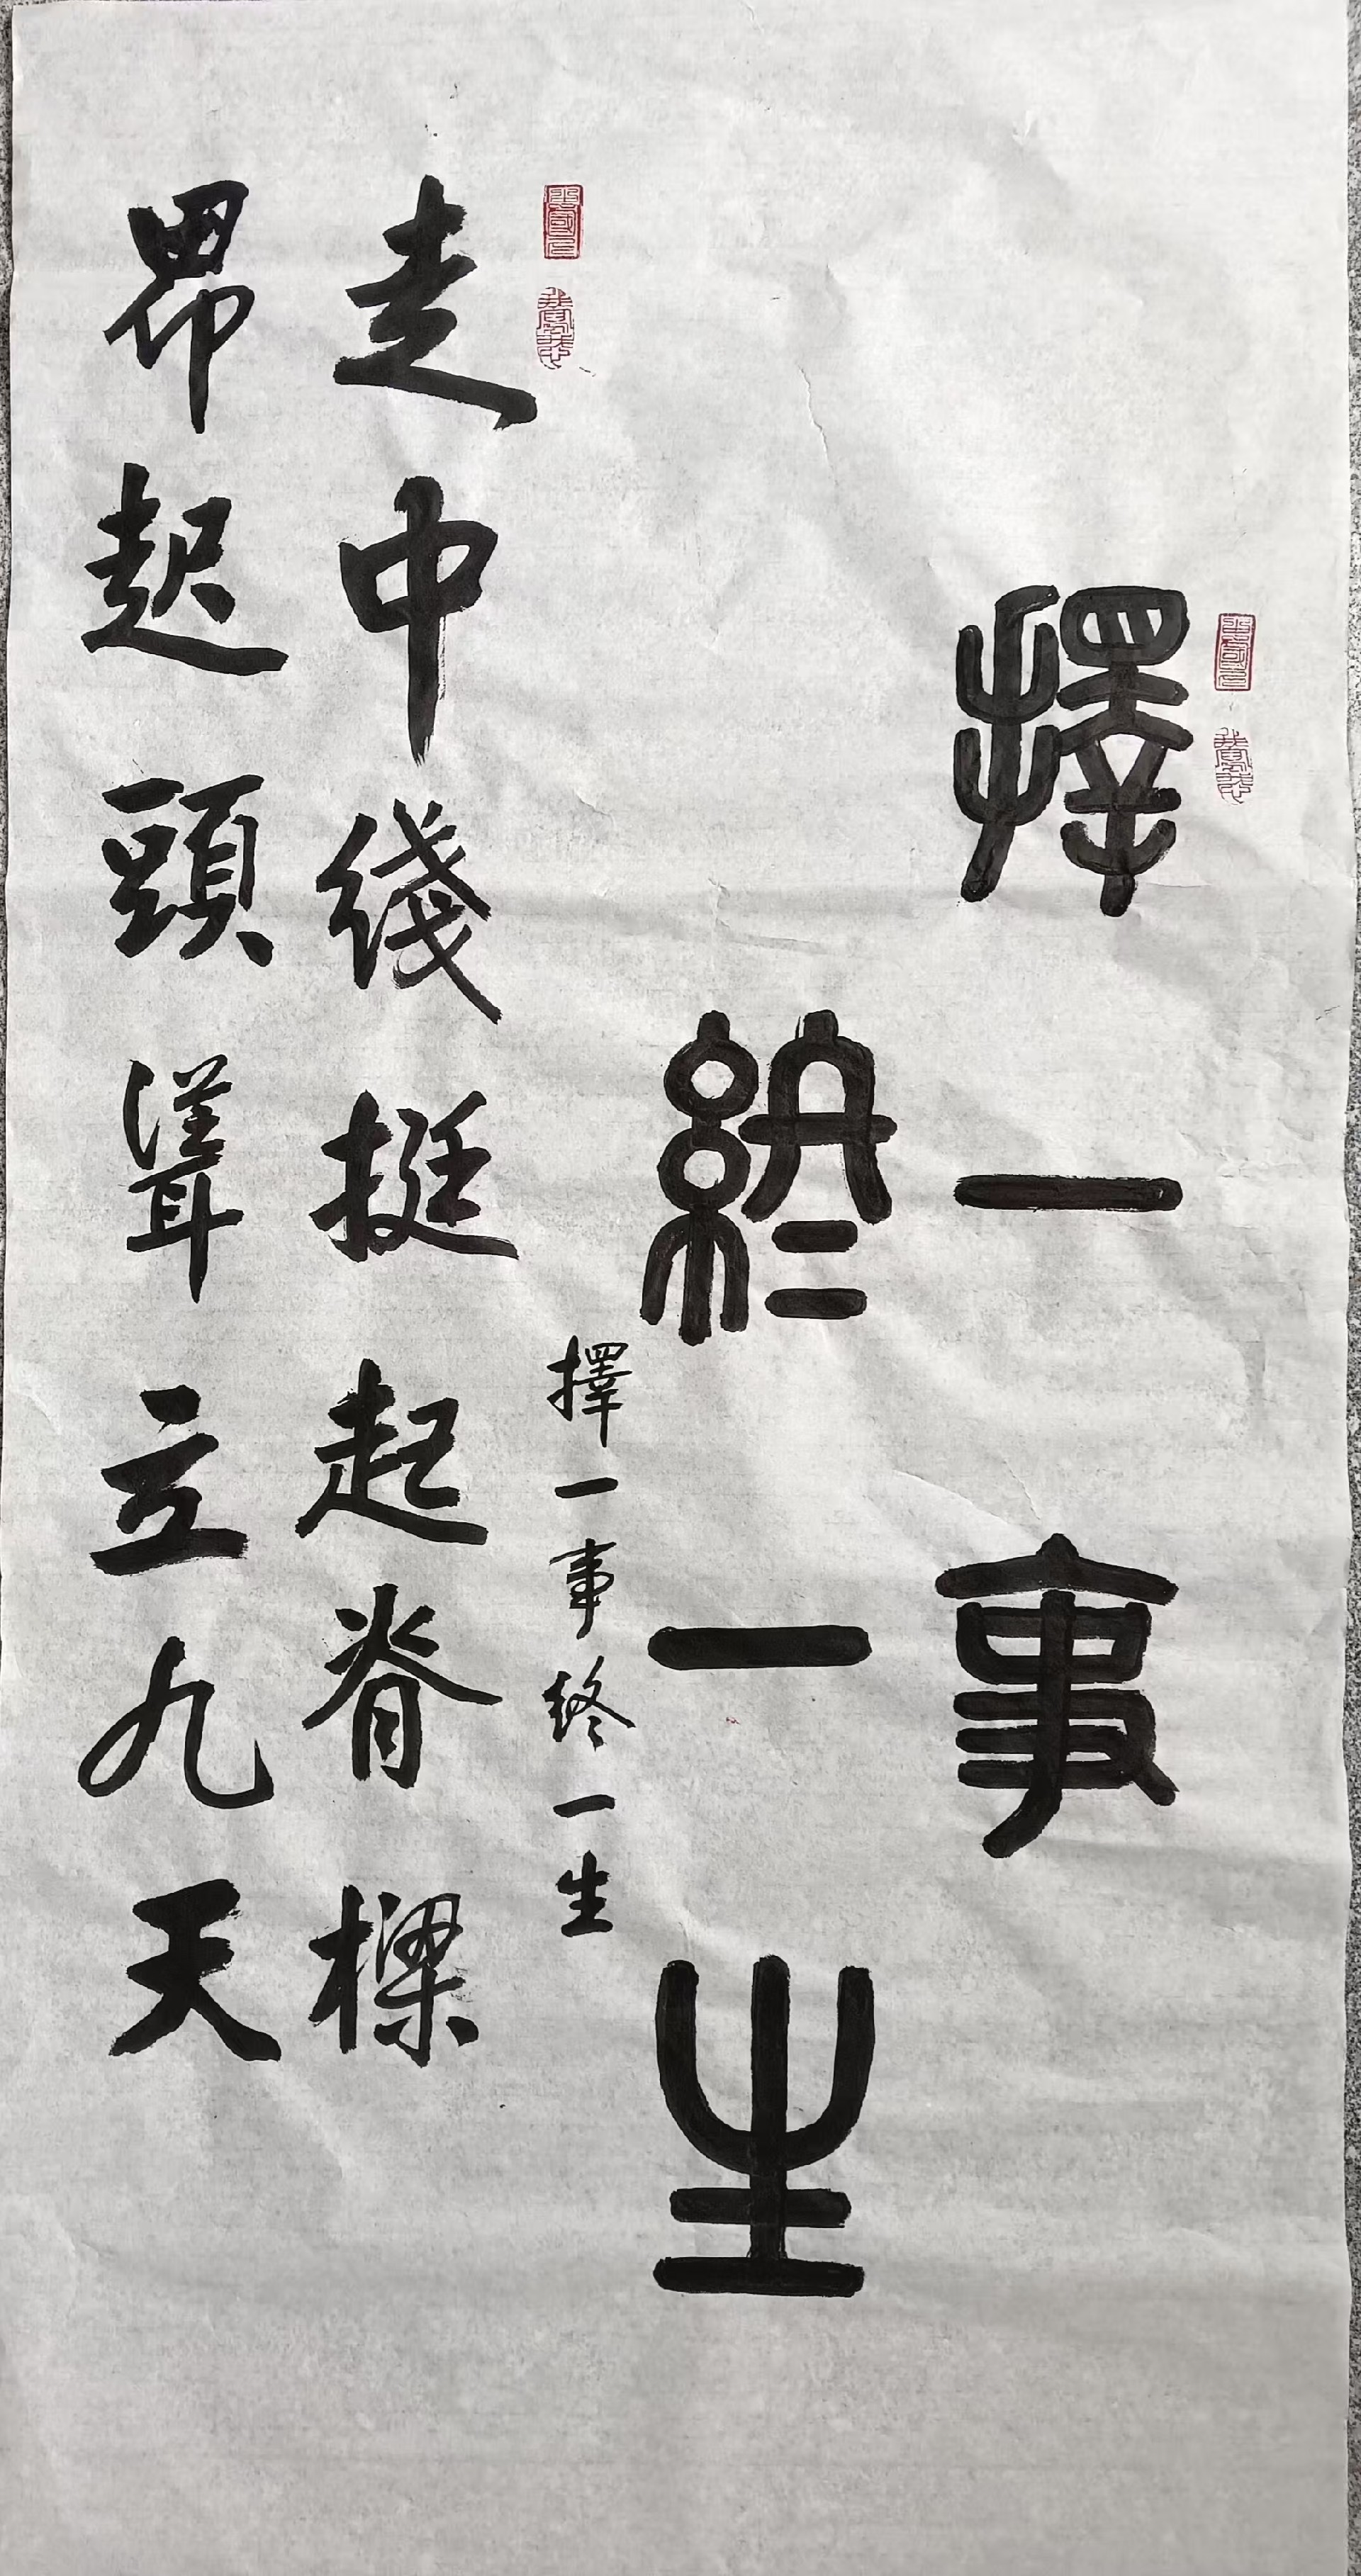 擇一事
終一生
擇一事终一生
走中线挺起脊樑
昂起頭聳立九天